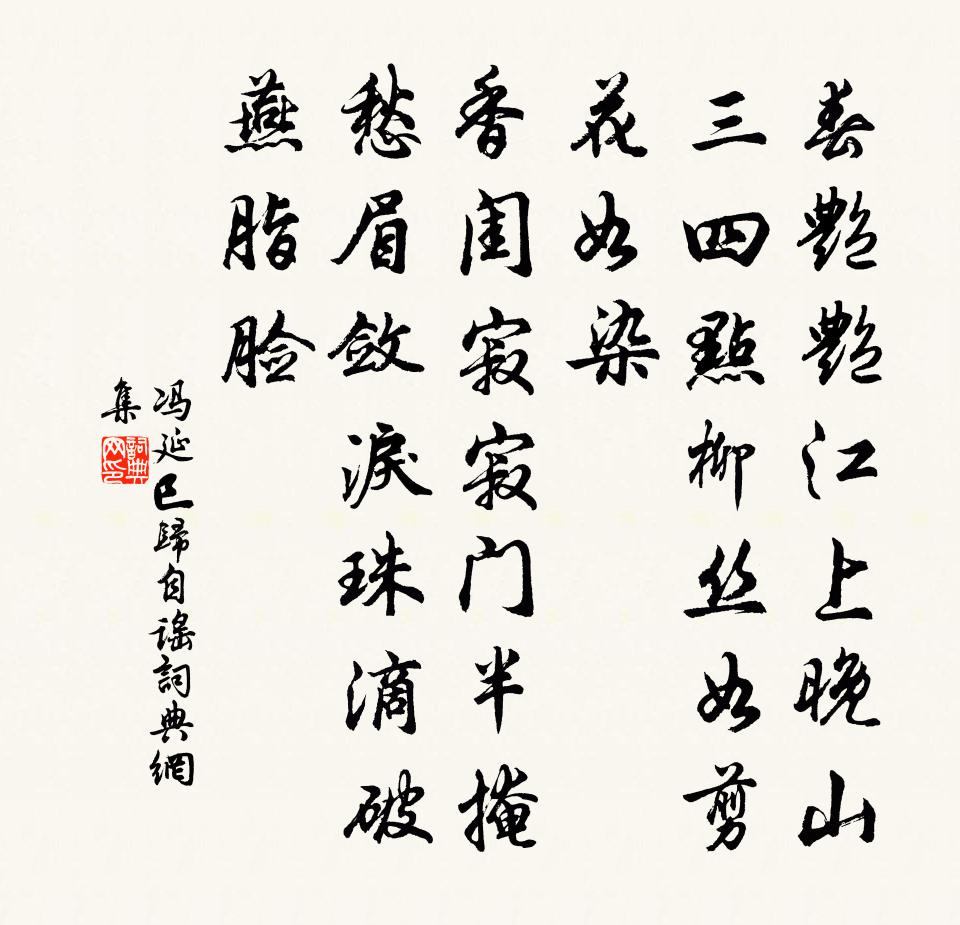 春艷艷江上晚山
三四點柳丝如剪
花如染
香闺寂寂门半掩
愁眉敛淚珠滴破
燕脂脸
冯延巳歸自谣詞典網
集
詞典网印